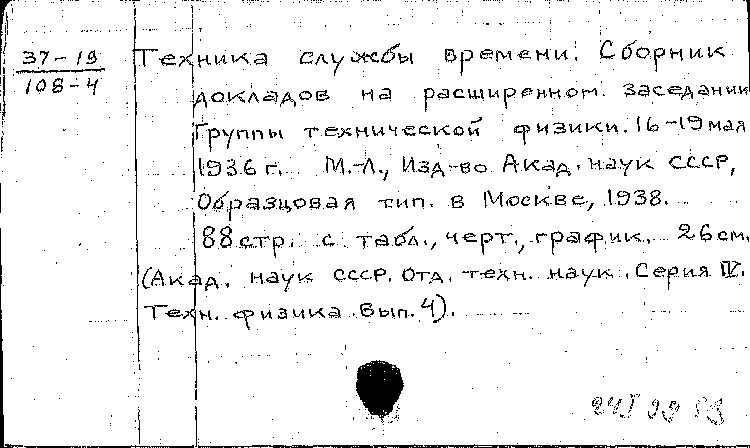 37-19
108-4
Техника службы времени. Сборник
докладов на расширенном заседании
Группы технической физики. 16-19 мая
1936 г. М.-Л., Изд-во Акад. наук СССР,
Образцовая тип. в Москве, 1938.
88 стр. с табл., черт., график. 26 см.
(Акад. наук СССР. Отд. техн. наук. Серия IV.
Техн. физика. Вып. 4).